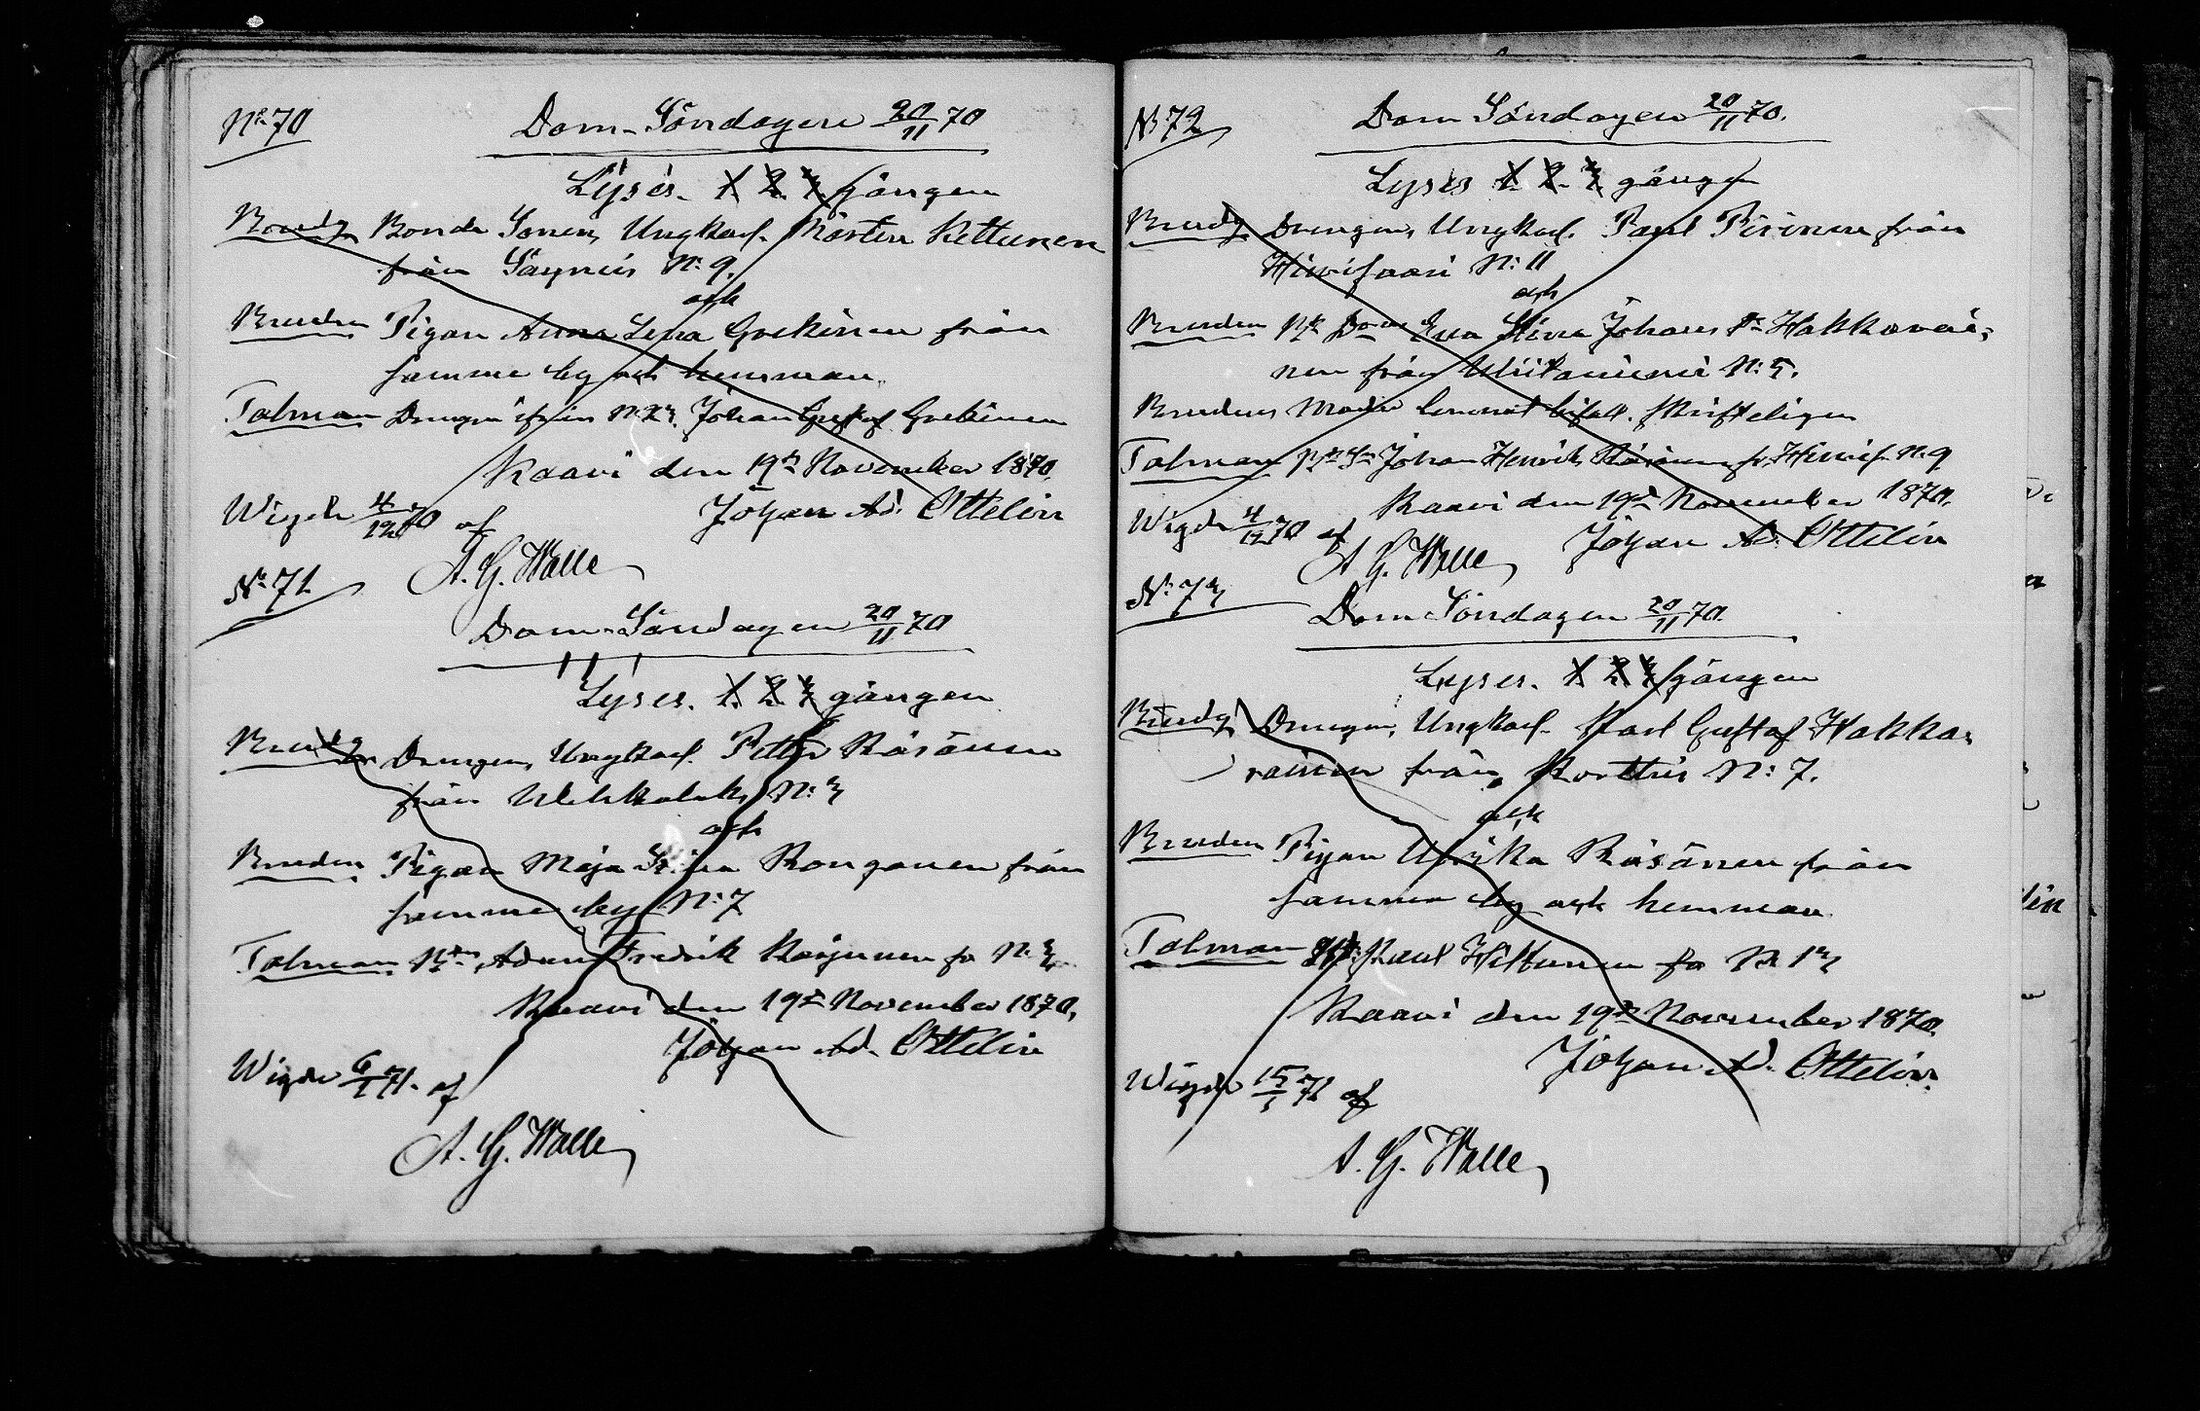 No 70
Dom-Söndagen 20/11 70
Lyses. 1. 2. 3 gången
Brudg. Bonde Sonen, Ungkarl. Mårten Kettunen
från Säyneis N:9.
och
Bruden Pigan Anna Lena Goekinen från
samma by och hemman.
Talman Drengen från N:23. Johan Gustaf
Kaavi den 19de November 1870.
Johan Ad. Ottelin
Wigde 4/12 70 af
A. G. Walle
No 71.
Dom-Söndagen 20/11 70
Lyses. 1. 2. 3 gången
Brudg. Drengen, Ungkarl. Petter Räsänen
från Wehkalaks N:3
och
Bruden Pigan Maja Stina Konganen från
samma by N:7
Talman Adam Fredrik från N:3
Kaavi den 19de November 1870.
Johan Ad. Ottelin
Wigde 6/1 71. af
A. G. Walle
No 72
Dom Söndagen 20/11 70.
Lyses 1. 2. 3 gången
Brudg. Drengen, Ungkarl. Paul Pirinen från
Hirvisaari N:11
och
Bruden Eva Stina Johans Dr Hakkarai-
nen från Niitaniemi N:5.
Brudens Moder lemnat bifall. skrifteligen
Talman Johan Henrik Räsänen fr. Hirvis. N:9
Kaavi den 19de November 1870.
Johan Ad. Ottelin
Wigde 4/12 70 af
A. G. Walle
No 73
Dom Söndagen 20/11 70.
Lyses. 1. 2. 3 gången
Brudg. Drengen, Ungkarl. Karl Gustaf Hakka-
rainen från Kortteis N:7.
och
Bruden Pigan Ulrika Räsänen från
samma by och hemman.
Talman Paul Hiltunen fr N:13
Kaavi den 19de November 1870.
Johan Ad. Ottelin.
Wigde 15/1 71 af
A. G. Walle